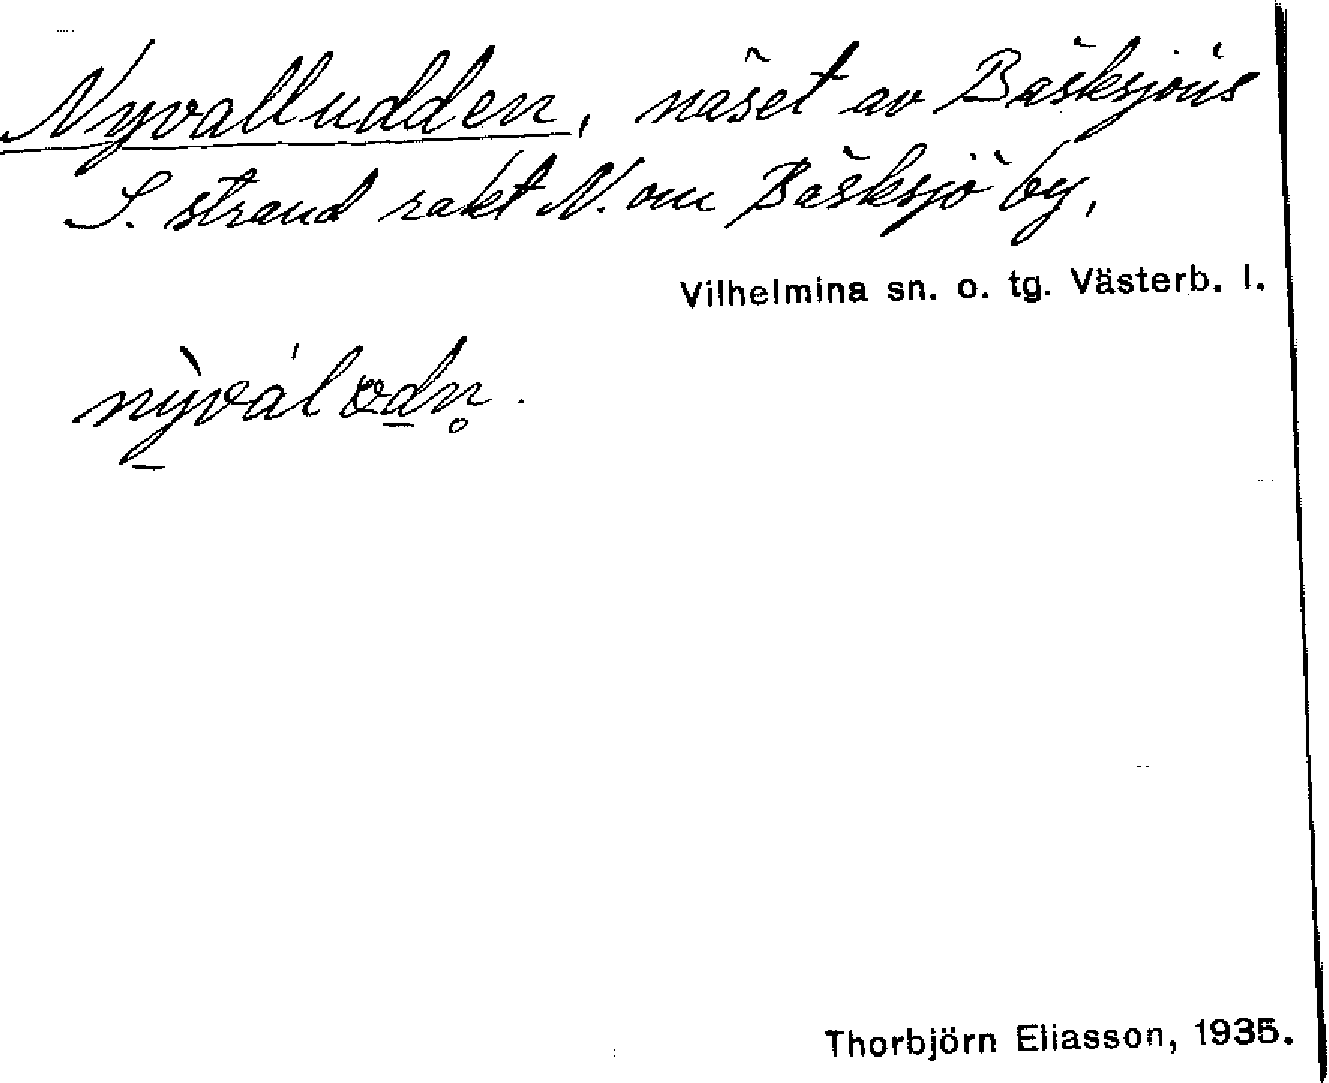 Nyvalludden, näset av Bäsksjöns
S. strand rakt N. om Bäsksjö by.
Vilhelmina sn. o. tg. Västerb. l.
Thorbjörn Eliasson, 1935.